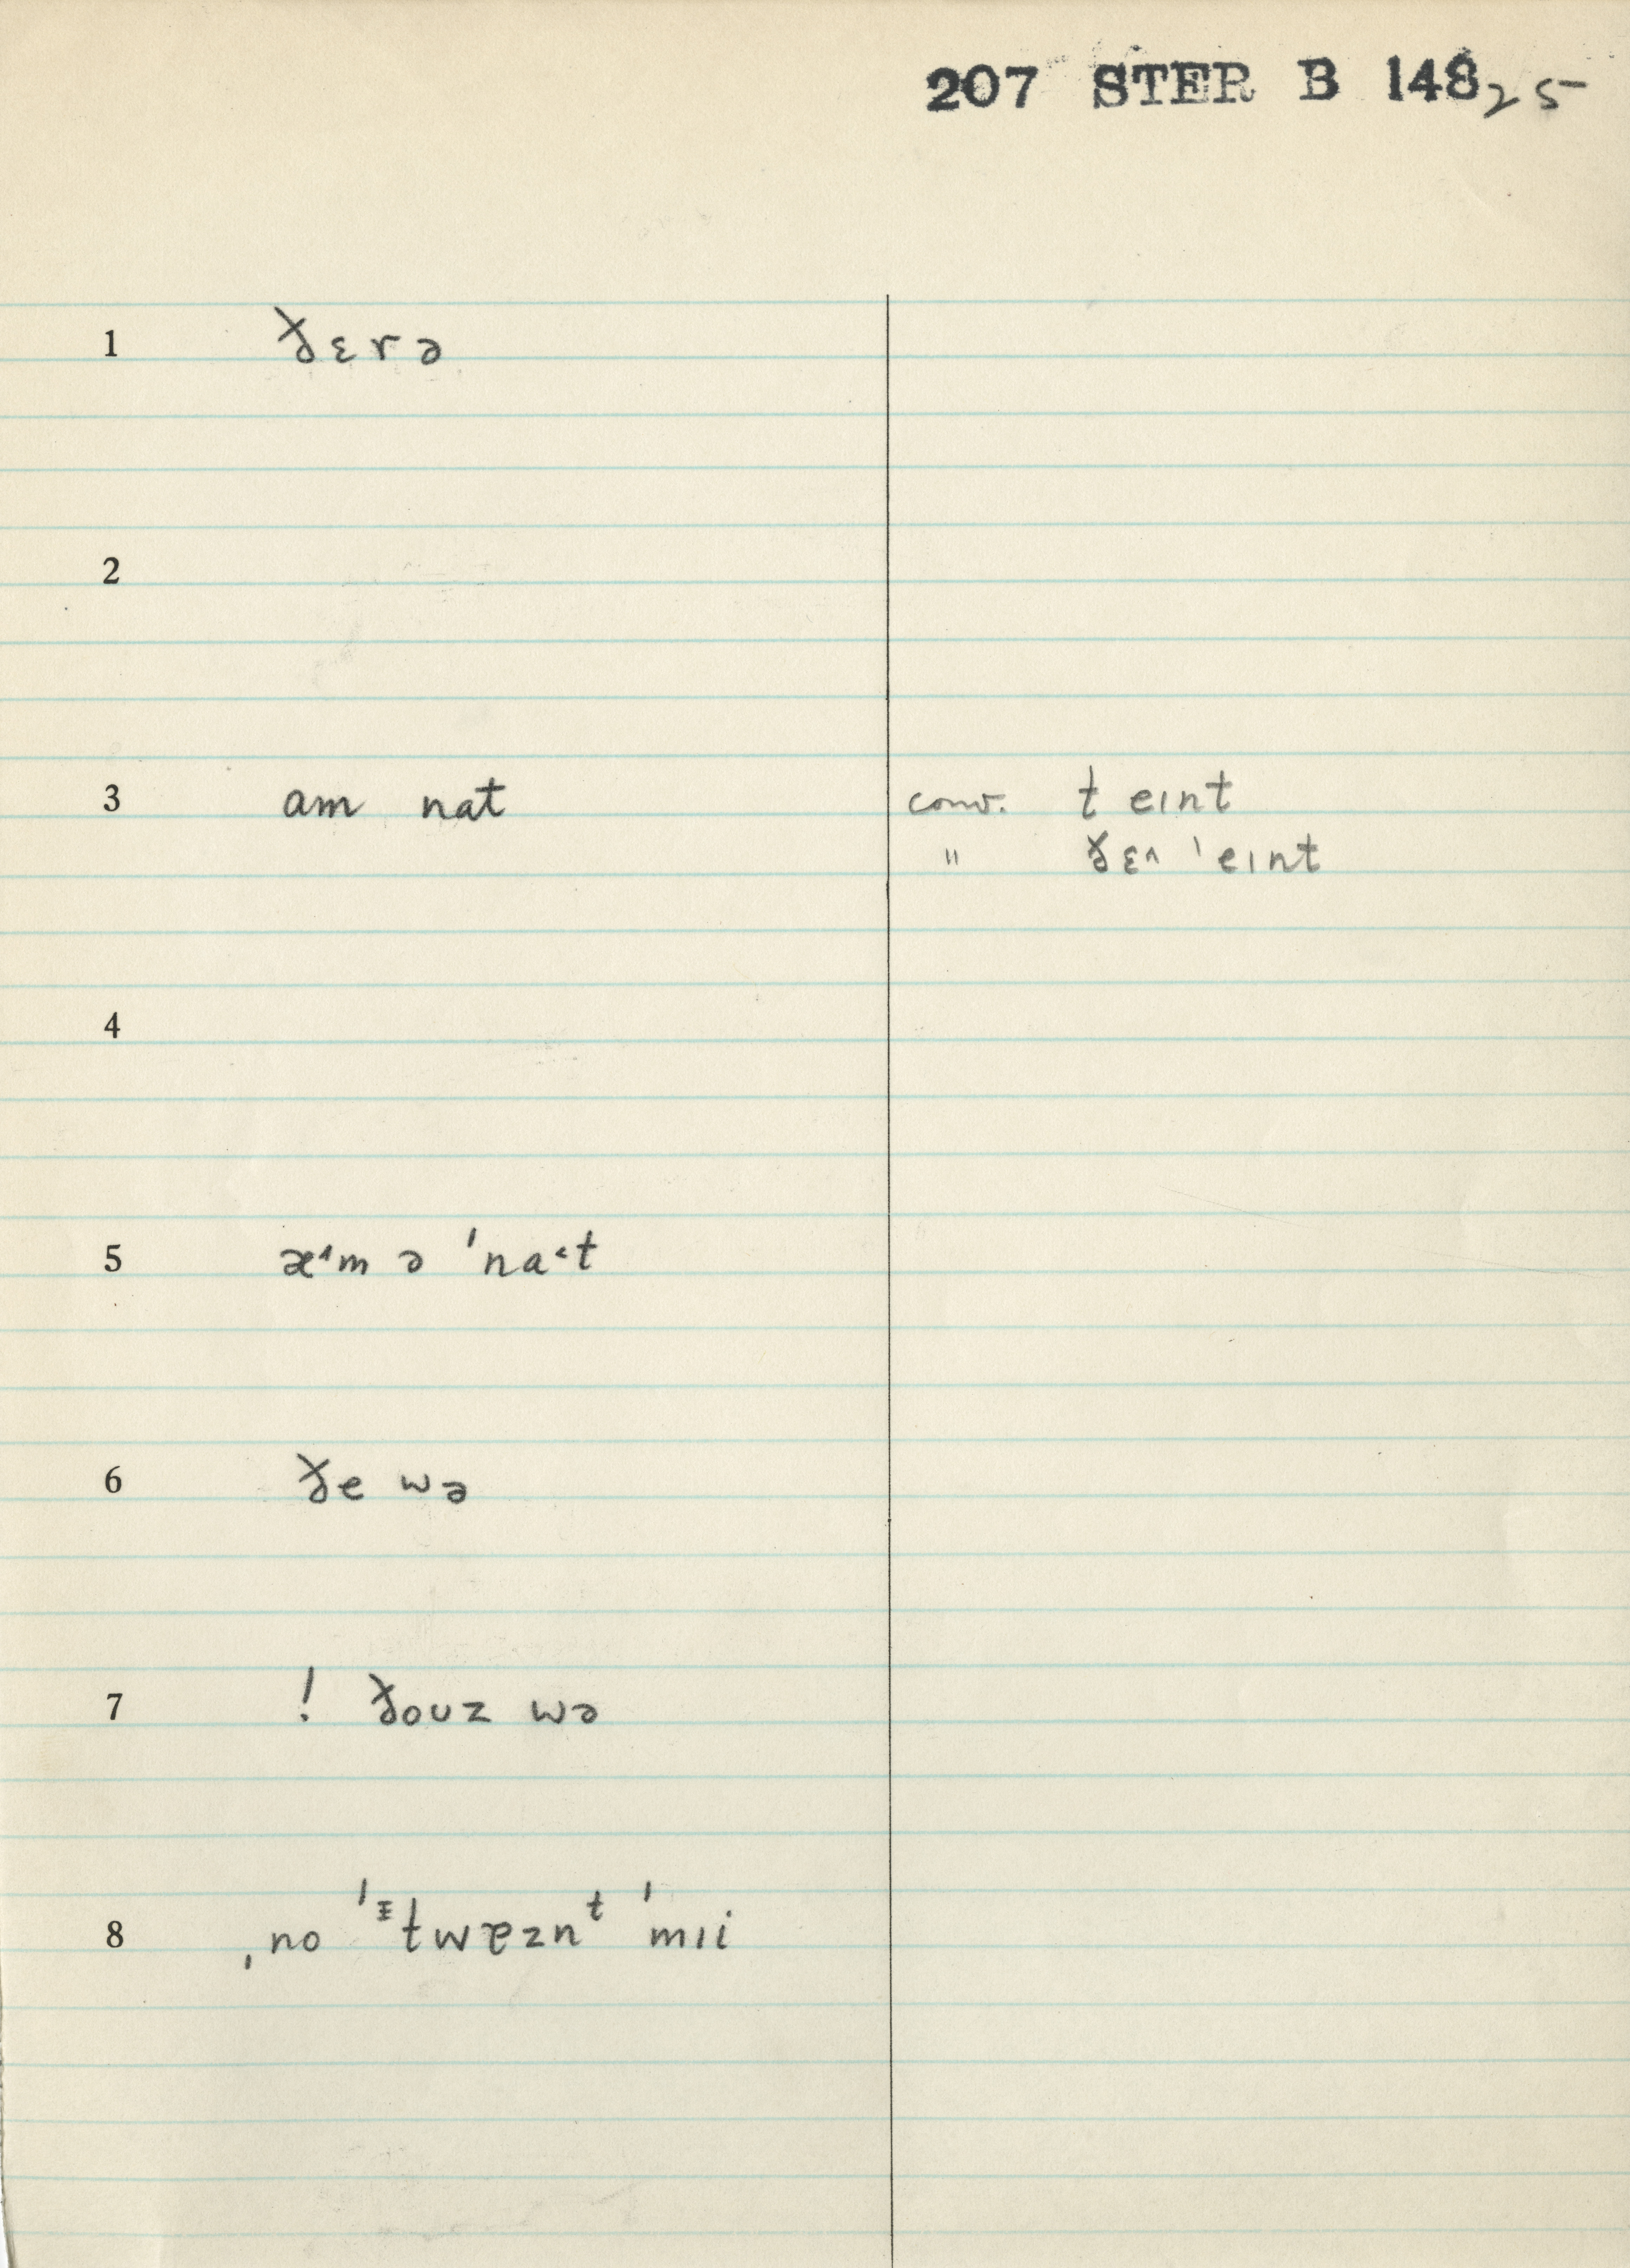 207 STER B 148 25
1 ð̵ɛrə
2
3 am nat conv. t eɪnt
" ð̵ɛ˄ ˈeɪnt
4
5 æ˄m ə ˈna˂t
6 ð̵e wə
7 ! ð̵oʊz wə
8 ˌno ˈᶤtwɐznᵗ ˈmɪi